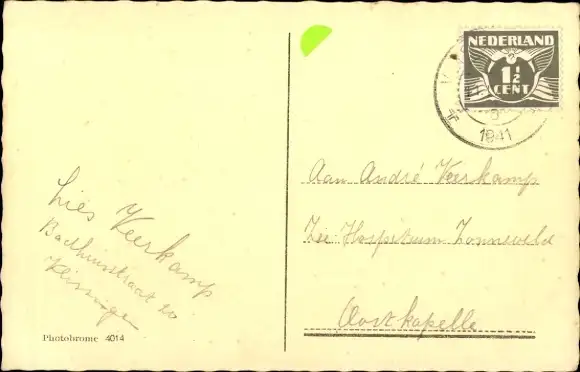 NEDERLAND
1½
CENT
1941
Aan André Veerkamp
Zee Hospitium Zonneveld
Oostkapelle
Lies Veerkamp
Badhuisstraat 20
Vlissingen
Photobrome 4014